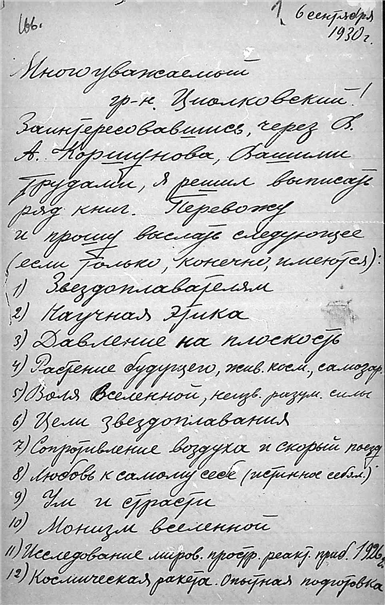 1.
6 сентября
1930 г.
Многоуважаемый
гр-н. Циолковский!
Заинтересовавшись, через В.
А. Коршунова, Вашими
трудами, я решил выписать
ряд книг. Перевожу
и прошу выслать следующее
(если только, конечно, имеются):
1) Звездоплавателям
2) Научная этика
3) Давление на плоскость
4) Растение будущего, жив. косм., самозар.
5) Воля Вселенной, неизв. разум. силы
6) Цели звездоплавания
7) Сопротивление воздуха и скорый поезд
8) Любовь к самому себе (истинное себял.)
9) Ум и страсти
10) Монизм вселенной
11) Исследование миров. простр. реакт. приб. 1926 г.
12) Космическая ракета. Опытная подготовка